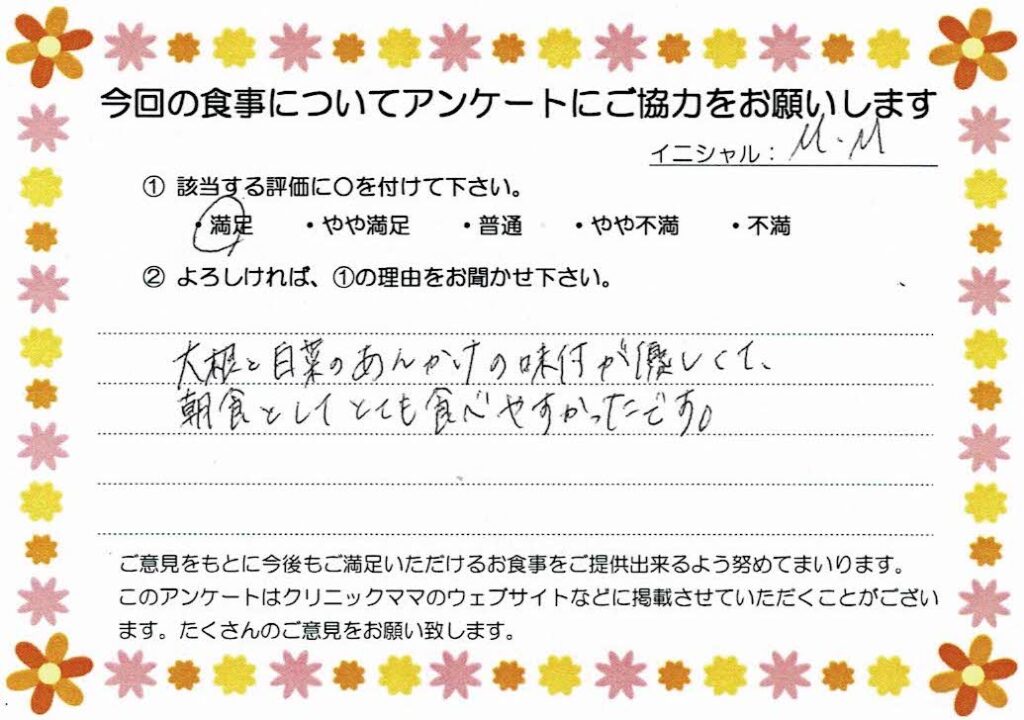 今回の食事についてアンケートにご協力をお願いします
イニシャル： M.M
① 該当する評価に〇を付けて下さい。
・満足 ・やや満足 ・普通 ・やや不満 ・不満
② よろしければ、①の理由をお聞かせ下さい。
大根と白菜のあんかけの味付が優しくて、
朝食としてとても食べやすかったです。
ご意見をもとに今後もご満足いただけるお食事をご提供出来るよう努めてまいります。
このアンケートはクリニックママのウェブサイトなどに掲載させていただくことがござい
ます。たくさんのご意見をお願い致します。